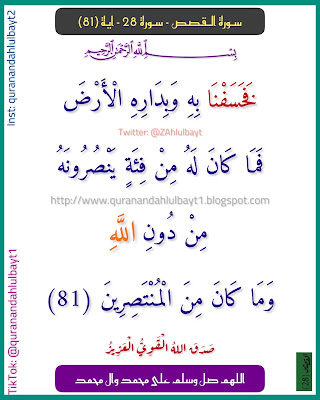 سورة القصص - سورة 28 - اية (81)
بِسْمِ اللَّهِ الرَّحْمَنِ الرَّحِيمِ
فَخَسَفْنَا بِهِ وَبِدَارِهِ الْأَرْضَ
Twitter: @ZAhlulbayt
فَمَا كَانَ لَهُ مِنْ فِئَةٍ يَنْصُرُونَهُ
http://www.quranandahlulbayt1.blogspot.com
مِنْ دُونِ اللَّهِ
وَمَا كَانَ مِنَ الْمُنْتَصِرِينَ (81)
صَدَقَ اللهُ الْقَوِيُّ الْعَزِيزُ
اللهم صل وسلم على محمد وال محمد
Inst: quranandahlulbayt2
TikTok: @quranandahlulbayt1